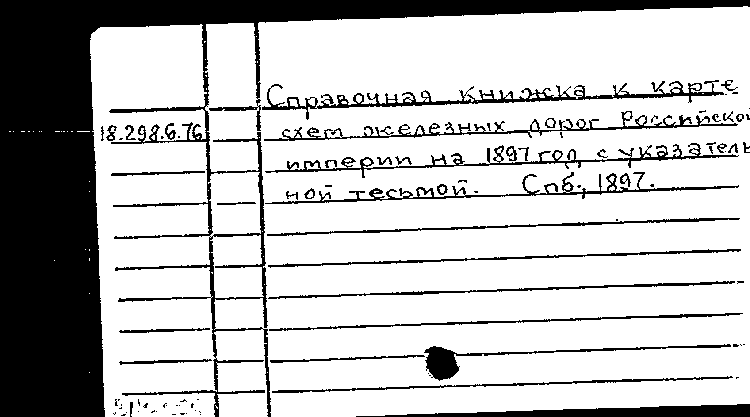 Справочная книжка к карте
18.298.6.76 схем железных дорог Российской
империи на 1897 год с указатель
ной тесьмой. Спб., 1897.